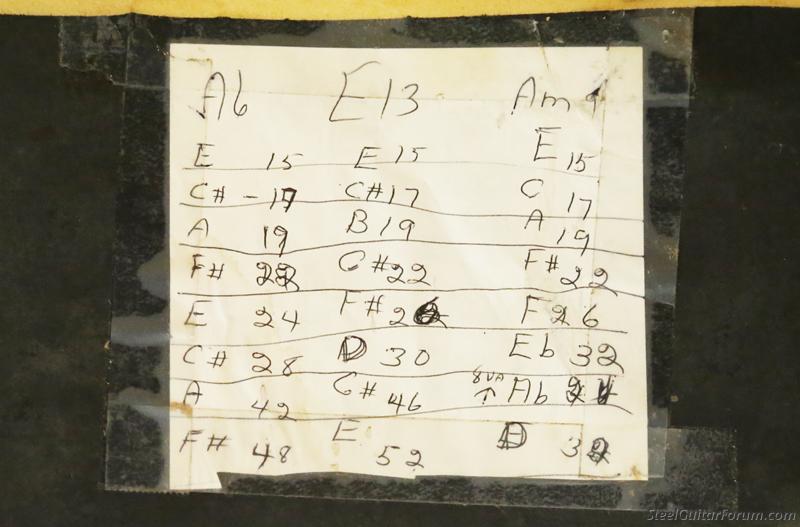 A6 E13 Am9
E 15 E 15 E 15
C# - 17 C# 17 C 17
A 19 B 19 A 19
F# 22 G# 22 F# 22
E 24 F# 26 F 26
C# 28 D 30 Eb 32
A 42 G# 46 8VA ↑ Ab
F# 48 E 52 D 32
SteelGuitarForum.com